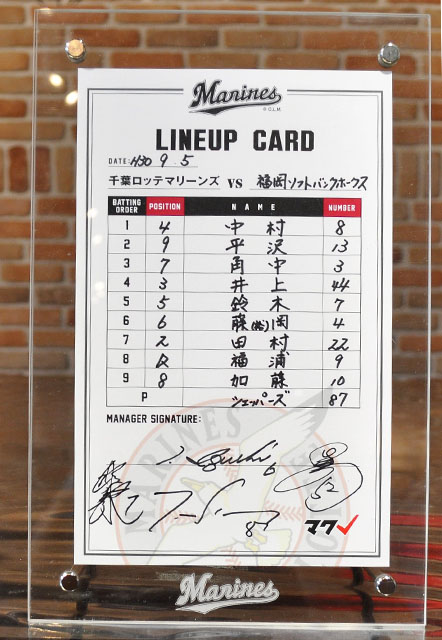 Marines
© C.L.M.
LINEUP CARD
DATE: H30 9. 5
千葉ロッテマリーンズ VS 福岡ソフトバンクホークス
BATTING ORDER POSITION NAME NUMBER
1 4 中村 8
2 9 平沢 13
3 7 角中 3
4 3 井上 44
5 5 鈴木 7
6 6 藤(裕)岡 4
7 2 田村 22
8 D 福浦 9
9 8 加藤 10
P シェッパーズ 87
MANAGER SIGNATURE:
6
52
87
マク
MARINES
Marines